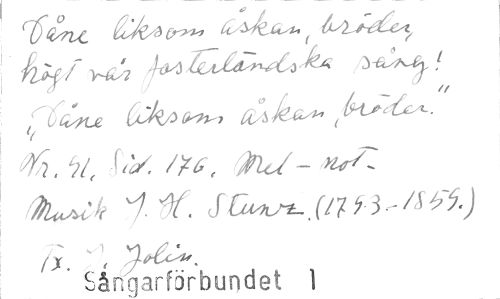 Dåne liksom åskan, bröder,
högt vår fosterländska sång!
"Dåne liksom åskan, bröder."
Nr. 91, Sid. 176. Mel-not-
Musik J. H. Stunz. (1793-1859.)
Tx. J. Jolin.
Sångarförbundet 1